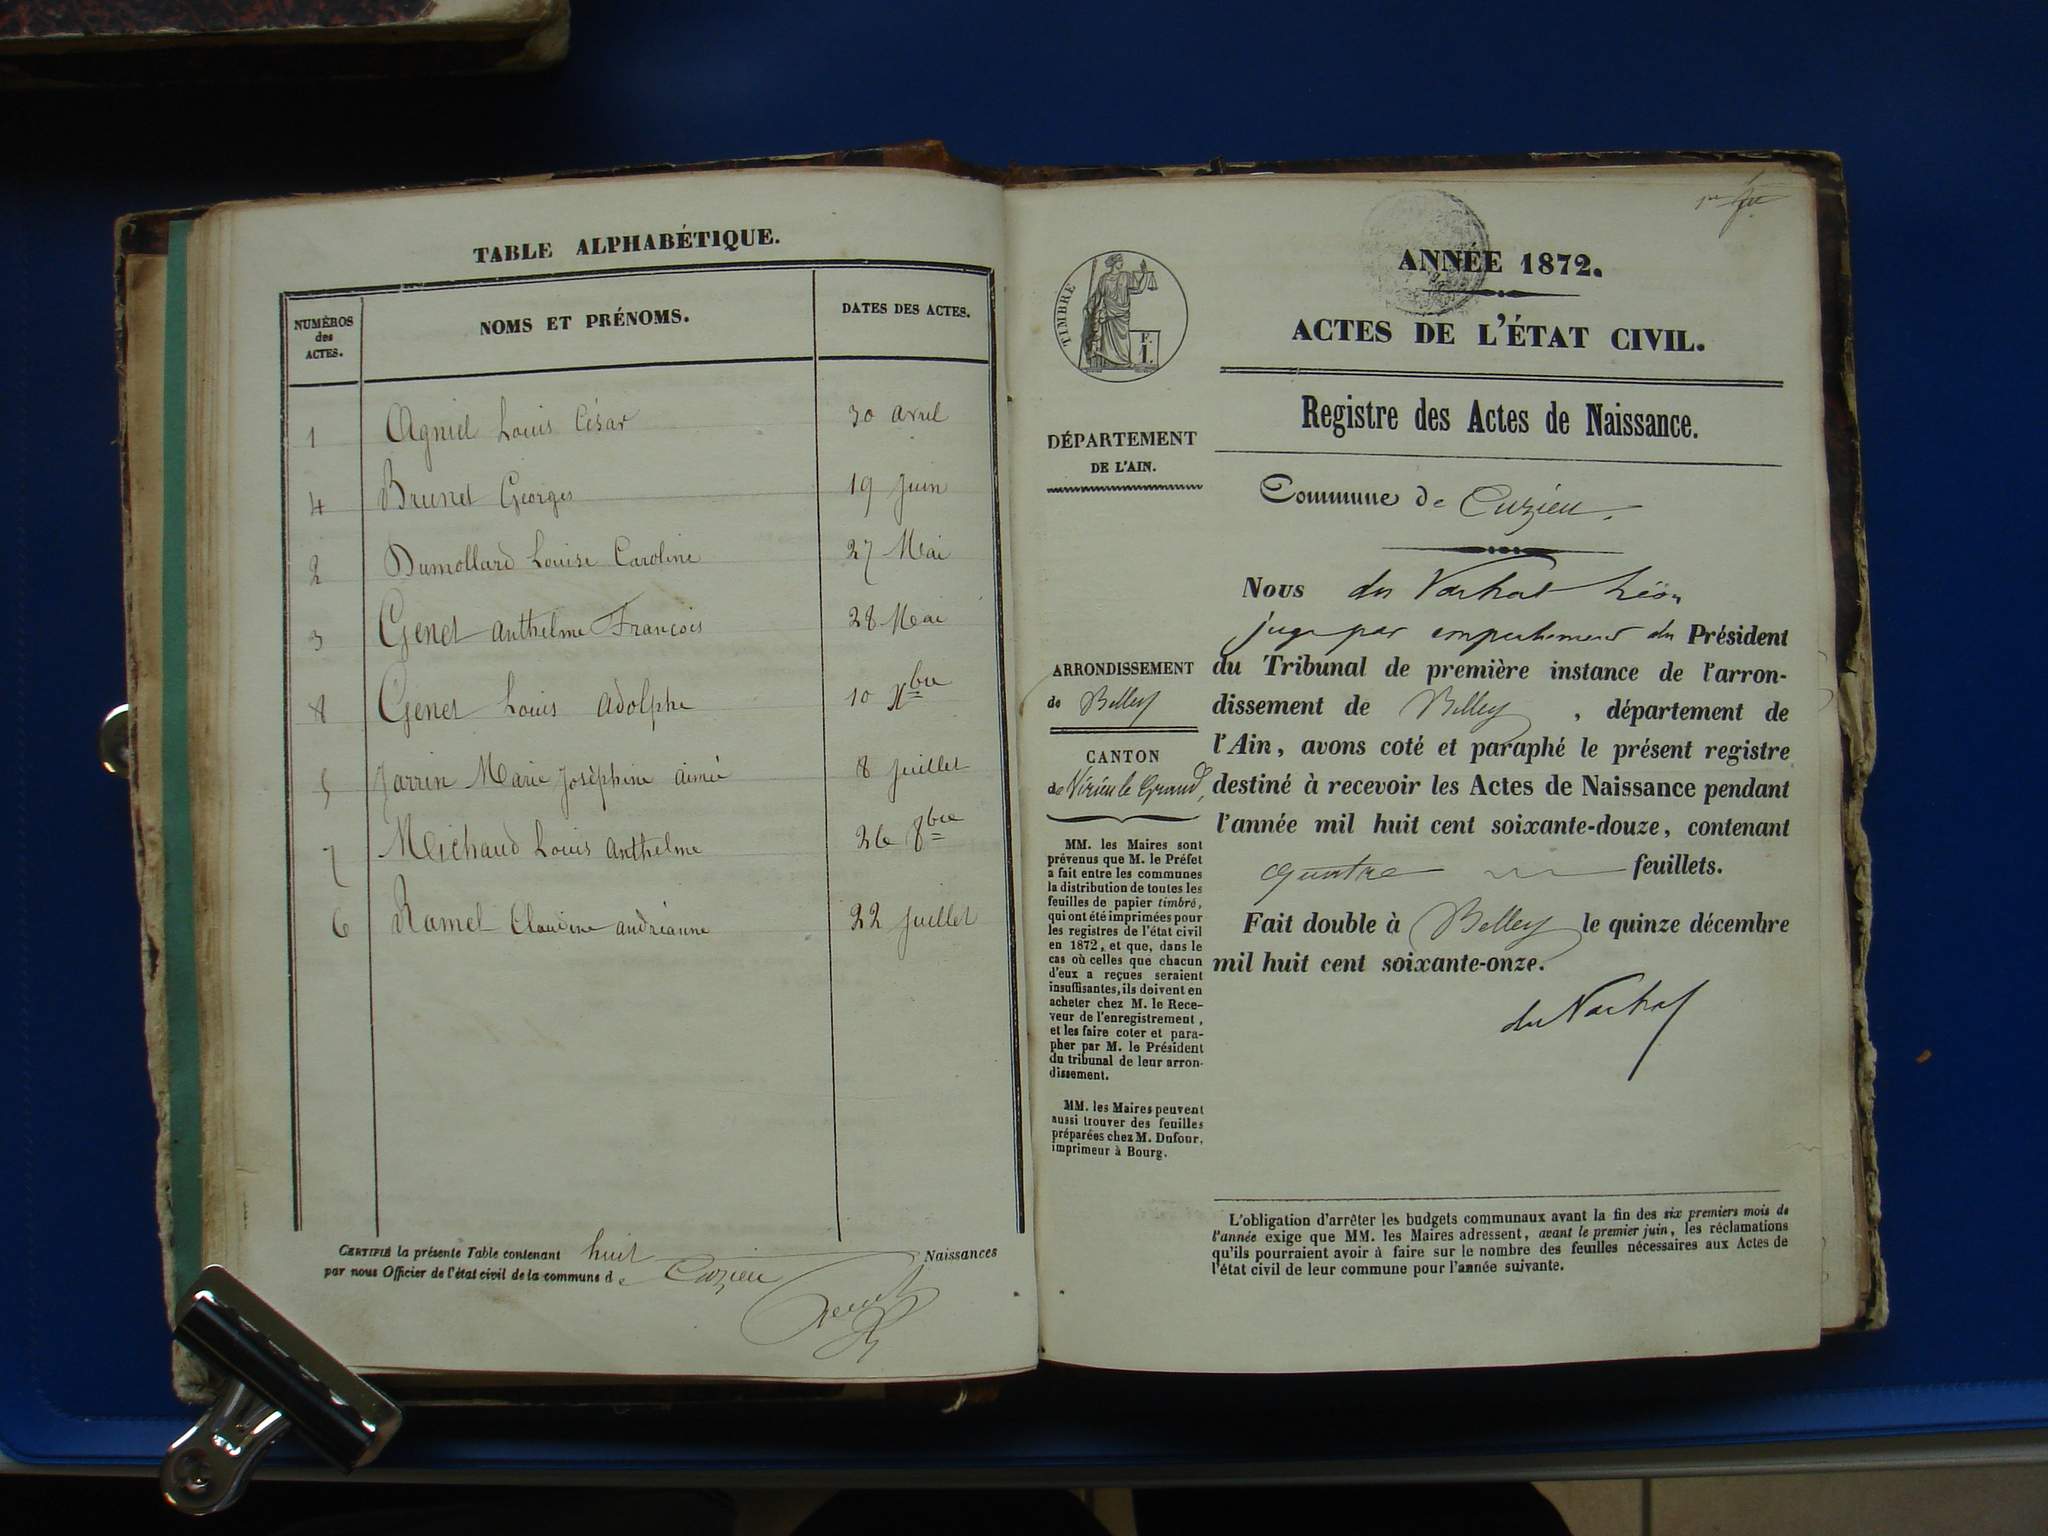 TABLE ALPHABÉTIQUE.
NUMÉROS
des
ACTES.
NOMS ET PRÉNOMS.
DATES DES ACTES.
1 Agniel Louis César 30 avril
4 Brunet Georges 19 juin
2 Dumollard Louise Caroline 27 Mai
3 Genet anthelme François 28 Mai
8 Genet Louis adolphe 10 Xbre
5 Jarrin Marie Joséphine aimée 8 juillet
7 Michaud Louis anthelme 26 8bre
6 Ramel Claudine andréanne 22 juillet
CERTIFIÉ la présente Table contenant huit Naissances
par nous Officier de l'état civil de la commune de Cuzieu
Genet
1er
TIMBRE
F.
L.
DÉPARTEMENT
DE L'AIN.
ARRONDISSEMENT
de Belley
CANTON
de Virieu le Grand,
MM. les Maires sont
prévenus que M. le Préfet
a fait entre les communes
la distribution de toutes les
feuilles de papier timbré,
qui ont été imprimées pour
les registres de l'état civil
en 1872, et que, dans le
cas où celles que chacun
d'eux a reçues seraient
insuffisantes, ils doivent en
acheter chez M. le Rece-
veur de l'enregistrement,
et les faire coter et para-
pher par M. le Président
du tribunal de leur arron-
dissement.
MM. les Maires peuvent
aussi trouver des feuilles
préparées chez M. Dufour,
imprimeur à Bourg.
ANNÉE 1872.
ACTES DE L'ÉTAT CIVIL.
Registre des Actes de Naissance.
Commune de Cuzieu.
Nous Léon
juge par empechement du Président
du Tribunal de première instance de l'arron-
dissement de Belley, département de
l'Ain, avons coté et paraphé le présent registre
destiné à recevoir les Actes de Naissance pendant
l'année mil huit cent soixante-douze, contenant
quatre feuillets.
Fait double à Belley le quinze décembre
mil huit cent soixante-onze.
L'obligation d'arrêter les budgets communaux avant la fin des six premiers mois de
l'année exige que MM. les Maires adressent, avant le premier juin, les réclamations
qu'ils pourraient avoir à faire sur le nombre des feuilles nécessaires aux Actes de
l'état civil de leur commune pour l'année suivante.